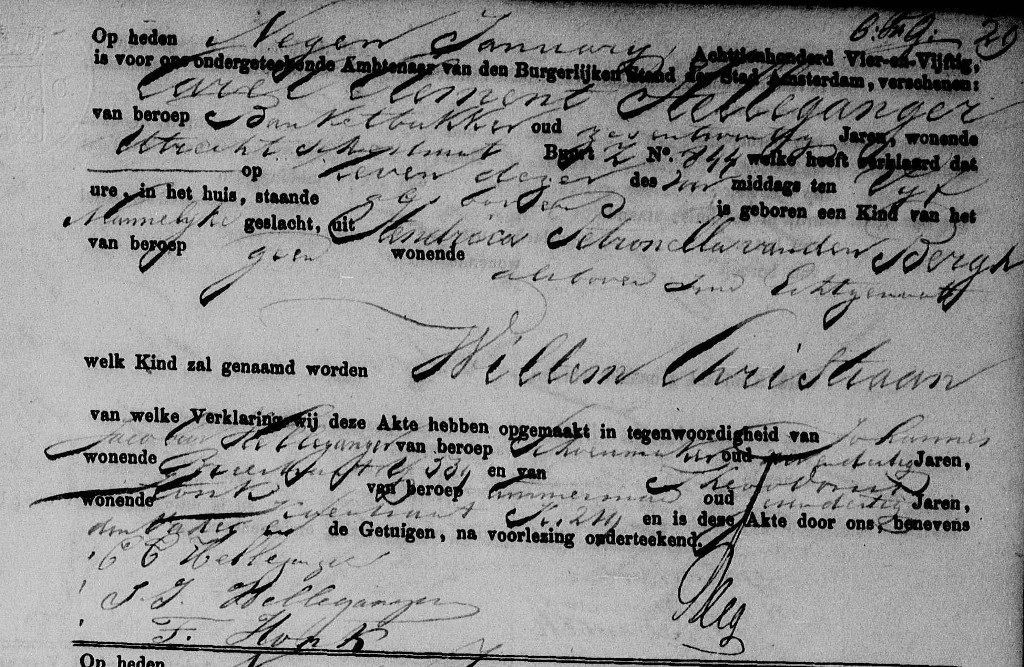 6. 29
Op heden Negen January Achttienhonderd Vier-en-Vijftig,
is voor ons ondergeteekende Ambtenaar van den Burgerlijken Stand der Stad Amsterdam, verschenen:
Carel Clement Helleganger
van beroep Banketbakker oud zesentwintig Jaren, wonende
Utrechtschestraat Buurt Z No. 744 welke heeft verklaard dat
op zeven dezer des middags ten Vyf
ure, in het huis, staande als boven is geboren een Kind van het
Mannelyke geslacht, uit Hendrica Petronella van den Bergh
van beroep geen wonende als boven zyne Echtgenoote
welk Kind zal genaamd worden Willem Christiaan
van welke Verklaring wij deze Akte hebben opgemaakt in tegenwoordigheid van Johannes
Jacobus Helleganger van beroep Schoenmaker oud Jaren,
wonende 339 en van Theodorus
Honk van beroep Timmerman oud Jaren,
wonende en is deze Akte door ons, benevens
den Vader en de Getuigen, na voorlezing onderteekend.
C C Helleganger
J. J. Helleganger
F. Honk
Op heden